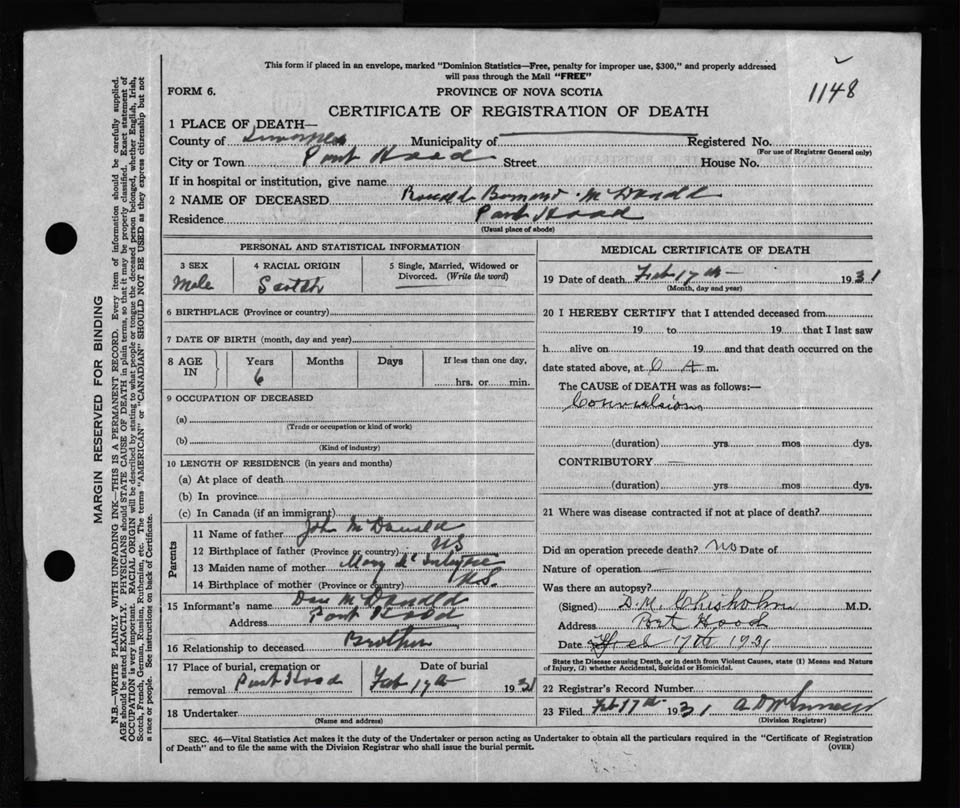 This form if placed in an envelope, marked "Dominion Statistics—Free, penalty for improper use, $300," and properly addressed
will pass through the Mail "FREE"
1148
FORM 6.
PROVINCE OF NOVA SCOTIA
CERTIFICATE OF REGISTRATION OF DEATH
1 PLACE OF DEATH—
County of Inverness Municipality of Registered No.
(For use of Registrar General only)
City or Town Port Hood Street House No.
If in hospital or institution, give name
2 NAME OF DECEASED Ronald McDonald
Residence Port Hood
(Usual place of abode)
PERSONAL AND STATISTICAL INFORMATION
3 SEX
Male
4 RACIAL ORIGIN
Scotch
5 Single, Married, Widowed or
Divorced. (Write the word)
6 BIRTHPLACE (Province or country)
7 DATE OF BIRTH (month, day and year)
8 AGE
IN
Years
6
Months
Days
If less than one day,
hrs. or min.
9 OCCUPATION OF DECEASED
(a)
(Trade or occupation or kind of work)
(b)
(Kind of industry)
10 LENGTH OF RESIDENCE (in years and months)
(a) At place of death
(b) In province
(c) In Canada (if an immigrant)
Parents
11 Name of father John McDonald
12 Birthplace of father (Province or country) NS
13 Maiden name of mother Mary McIntyre
14 Birthplace of mother (Province or country) N.S.
15 Informant's name Dan McDonald
Address Port Hood
16 Relationship to deceased Brother
17 Place of burial, cremation or
removal Port Hood
Date of burial
Feb 19th 1931
18 Undertaker
(Name and address)
MEDICAL CERTIFICATE OF DEATH
19 Date of death Feb 17th 1931
(Month, day and year)
20 I HEREBY CERTIFY that I attended deceased from
19 to 19 that I last saw
h alive on 19 and that death occurred on the
date stated above, at A m.
The CAUSE of DEATH was as follows:—
Convulsions
(duration) yrs mos dys.
CONTRIBUTORY
(duration) yrs mos dys.
21 Where was disease contracted if not at place of death?
Did an operation precede death? no Date of
Nature of operation
Was there an autopsy?
(Signed) D.M. Chisholm M.D.
Address Port Hood
Date Feb 17th 1931
State the Disease causing Death, or in death from Violent Causes, state (1) Means and Nature
of Injury, (2) whether Accidental, Suicidal or Homicidal.
22 Registrar's Record Number
23 Filed Feb 17th 1931
(Division Registrar)
SEC. 46—Vital Statistics Act makes it the duty of the Undertaker or person acting as Undertaker to obtain all the particulars required in the "Certificate of Registration
of Death" and to file the same with the Division Registrar who shall issue the burial permit.
(OVER)
MARGIN RESERVED FOR BINDING
N.B.—WRITE PLAINLY WITH UNFADING INK—THIS IS A PERMANENT RECORD. Every item of information should be carefully supplied.
AGE should be stated EXACTLY. PHYSICIANS should STATE CAUSE OF DEATH in plain terms, so that it may be properly classified. Exact statement of
OCCUPATION is very important. RACIAL ORIGIN will be described by stating to what people or tongue the deceased person belonged, whether English, Irish,
Scotch, French, German, Russian, Ruthenian, etc. The terms "AMERICAN" or "CANADIAN" SHOULD NOT BE USED as they express citizenship but not
a race or people. See instructions on back of Certificate.